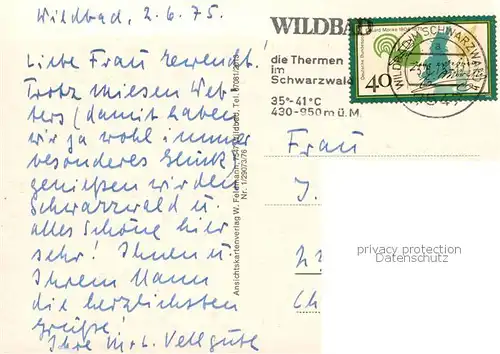 Wildbad, 2.6.75.
Liebe Frau
Trotz miesen Wet-
ters (damit haben
wir ja wohl immer
besonderes Glück
genießen wir den
Schwarzwald u.
alles Schöne hier
sehr! Ihnen u.
Ihrem Mann
die herzlichsten
Grüße!
Ihre
Ansichtskartenverlag W. Feldmann, 7547 Wildbad, Tel. 07081/
Nr. 1/29073/76
WILDBAD
die Thermen
im
Schwarzwald
35°-41°C
430-950m ü.M.
Eduard Mörike
40
WILDBAD IM SCHWARZWALD
a
Frau
J.
privacy protection
Datenschutz